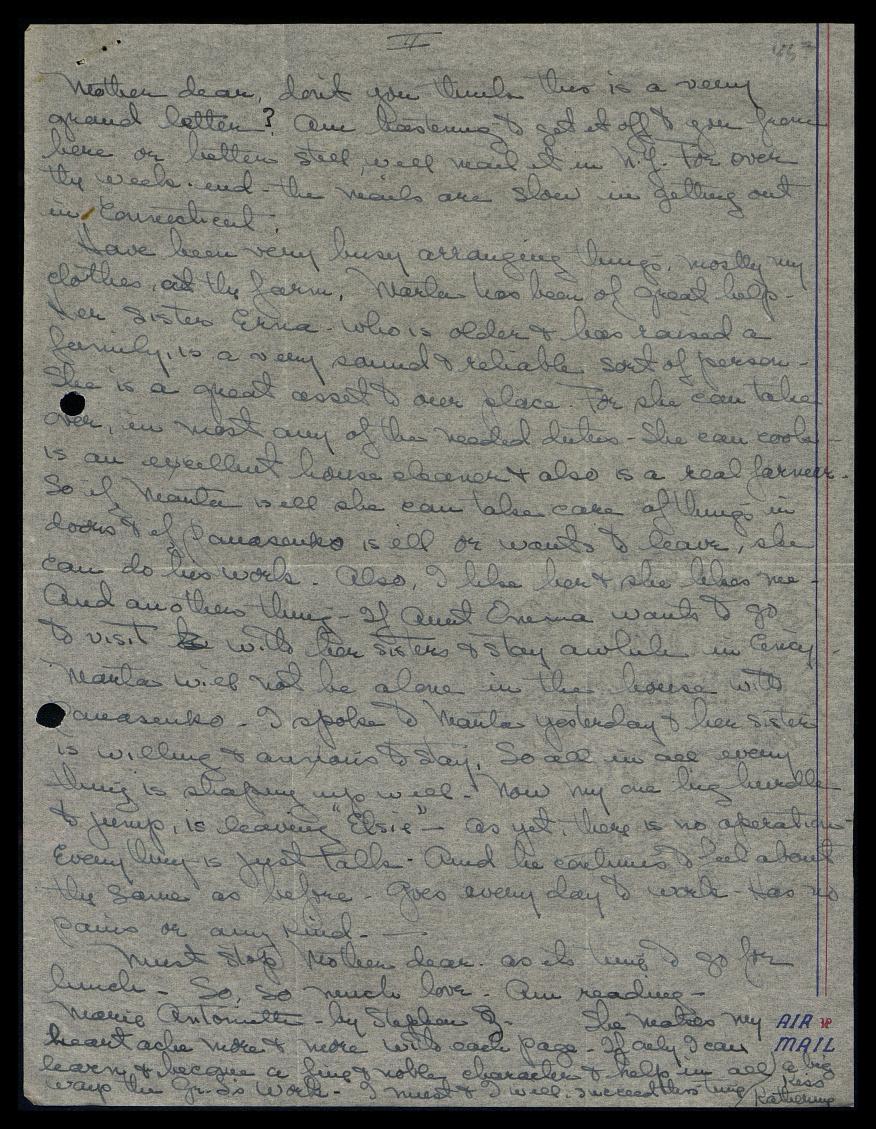 II
Mother dear, don't you think this is a very
grand letter? Am hastening to get it off to you from
here or better still, will mail it in N.Y. For over
the week-end - the mails are slow in getting out
in Connecticut.
Have been very busy arranging things, mostly my
clothes, at the farm. Marta has been of great help -
Her sister Erna - who is older & has raised a
family, is a very sound & reliable sort of person -
She is a great asset to our place. For she can take
over, in most any of the needed duties - She can cook -
is an excellent house cleaner & also is a real farmer.
So if Marta is ill she can take care of things in
doors & if Panasenko is ill or wants to leave, she
can do his work. Also, I like her & she likes me -
And another thing - If Aunt wants to go
to visit with her sisters & stay awhile in
Marta will not be alone in the house with
Panasenko - I spoke to Marta yesterday & her sister
is willing & anxious to stay. So all in all every
thing is shaping up well - Now my one big hurdle
to jump, is leaving "Elsie" - as yet, there is no operation -
Everything is just talk - And he continues to feel about
the same as before - Goes every day to work - Has no
pains or any kind -
Must stop Mother dear - as its time to go for
lunch - So, so much love - Am reading -
Marie Antoinette - by Stephen Z. She makes my
heart ache more & more with each page - If only I can
learn & become a fine & noble character & help in all
ways the Gr. Work - I must & I will succeed this time
a big
kiss
Katherine
AIR
MAIL